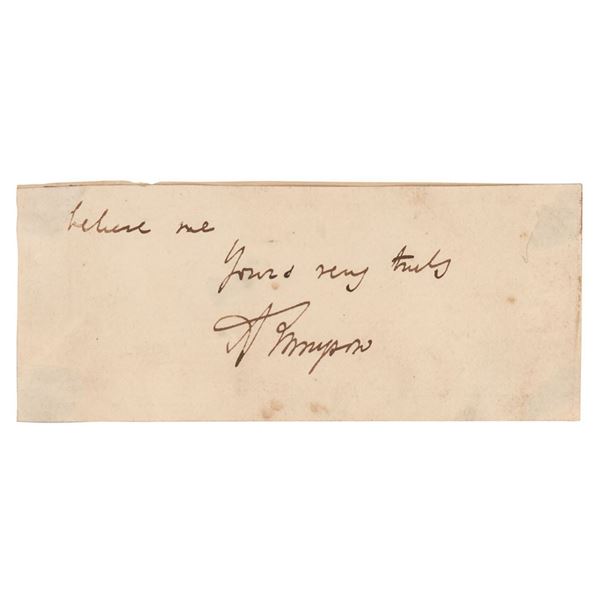 believe me
Yours very truly
A Tennyson